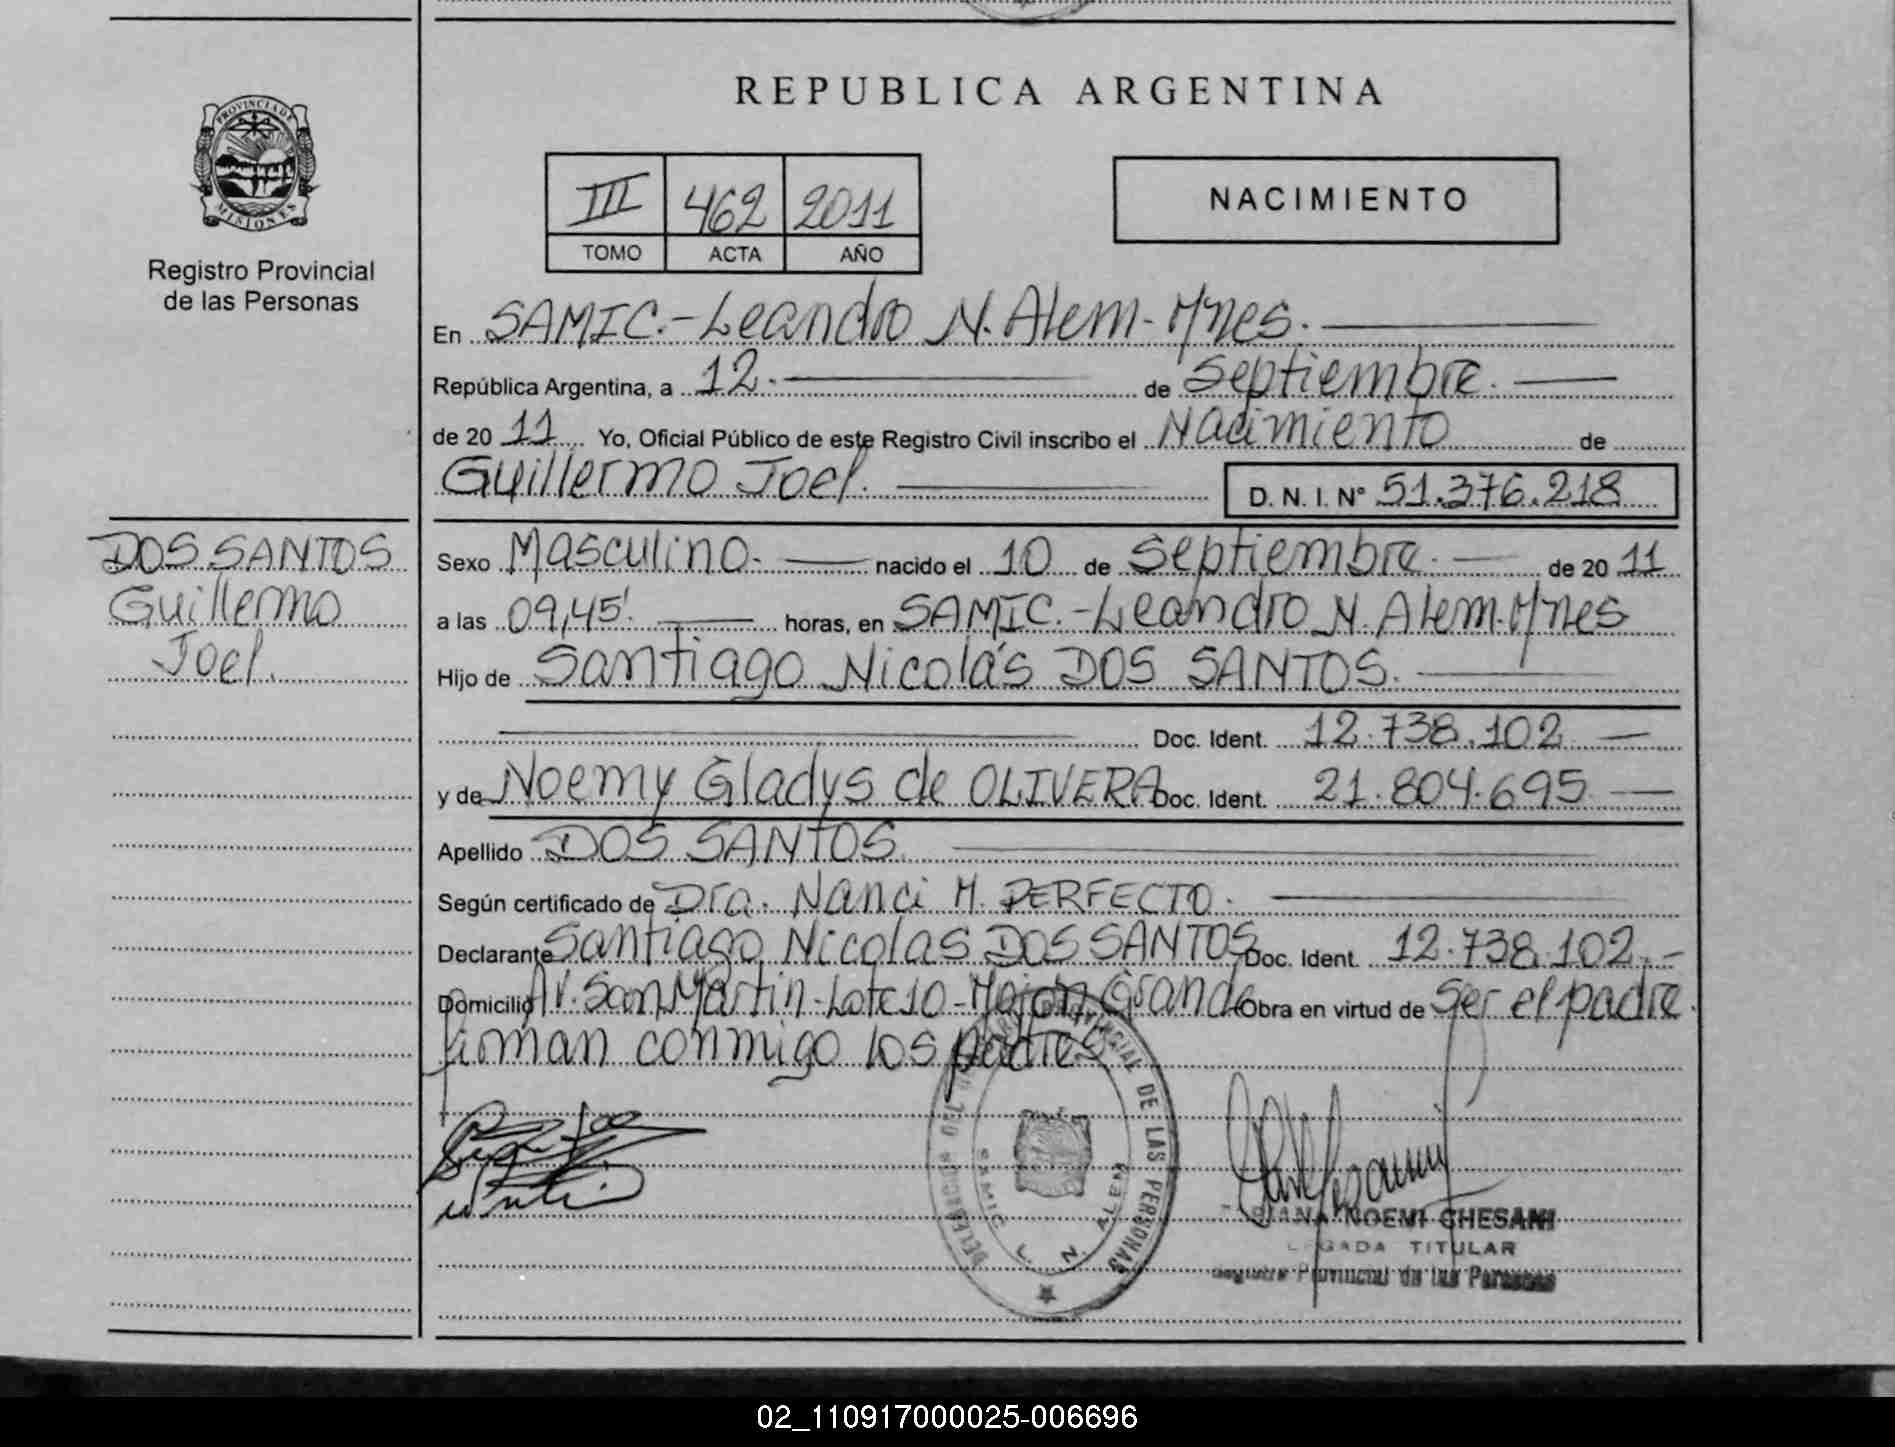 PROVINCIA DE
MISIONES
Registro Provincial
de las Personas
DOS SANTOS
Guillermo
Joel.
REPUBLICA ARGENTINA
III 462 2011
TOMO ACTA AÑO
NACIMIENTO
En SAMIC.-Leandro N. Alem-Mnes.
República Argentina, a 12. de Septiembre.
de 2011 Yo, Oficial Público de este Registro Civil inscribo el Nacimiento de
Guillermo Joel. D. N. I. N° 51.376.218
Sexo Masculino. nacido el 10 de Septiembre. de 2011
a las 09,45'. horas, en SAMIC.-Leandro N. Alem-Mnes
Hijo de Santiago Nicolás DOS SANTOS.
Doc. Ident. 12.738.102
y de Noemy Gladys de OLIVERA Doc. Ident. 21.804.695
Apellido DOS SANTOS.
Según certificado de Dra. Nanci M. PERFECTO.
Declarante Santiago Nicolas DOS SANTOS Doc. Ident. 12.738.102.-
Domicilio Av. San Martin-Lote 10-Mojon Grande Obra en virtud de Ser el padre.
firman conmigo los padres
DE LAS PERSONAS
SAMIC L. N. ALEM
NOEMI CHESANI
TITULAR
Registro Provincial de las Personas
02_110917000025-006696